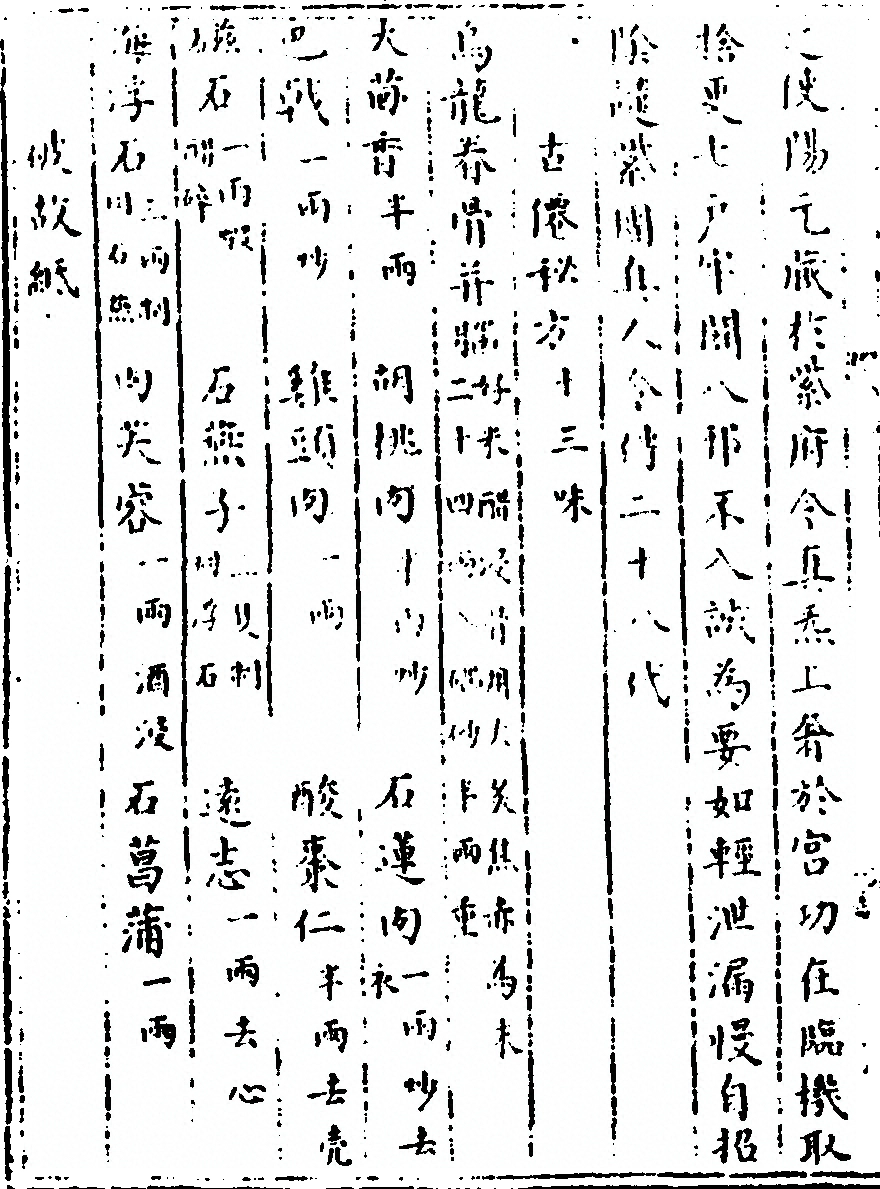 使陽元藏於紫府令真炁上昇於宮功在臨機取
捨更七戶牢關八邪不入誠為要如輕泄漏慢自招
陰譴紫團真人令傳二十八代
古僊秘方十三味
烏龍脊骨并髓好米醋浸骨用火炙焦赤為末二十四兩入硇砂半兩重
大茴香半兩 胡桃肉十兩炒 石蓮肉一兩炒去衣
巴戟一兩炒 雞頭肉一兩 酸棗仁半兩去壳
磁石一兩煅醋碎 石燕子二隻制同浮石 遠志一兩去心
海浮石三兩制同石燕 肉芙蓉一兩酒浸 石菖蒲一兩
破故紙